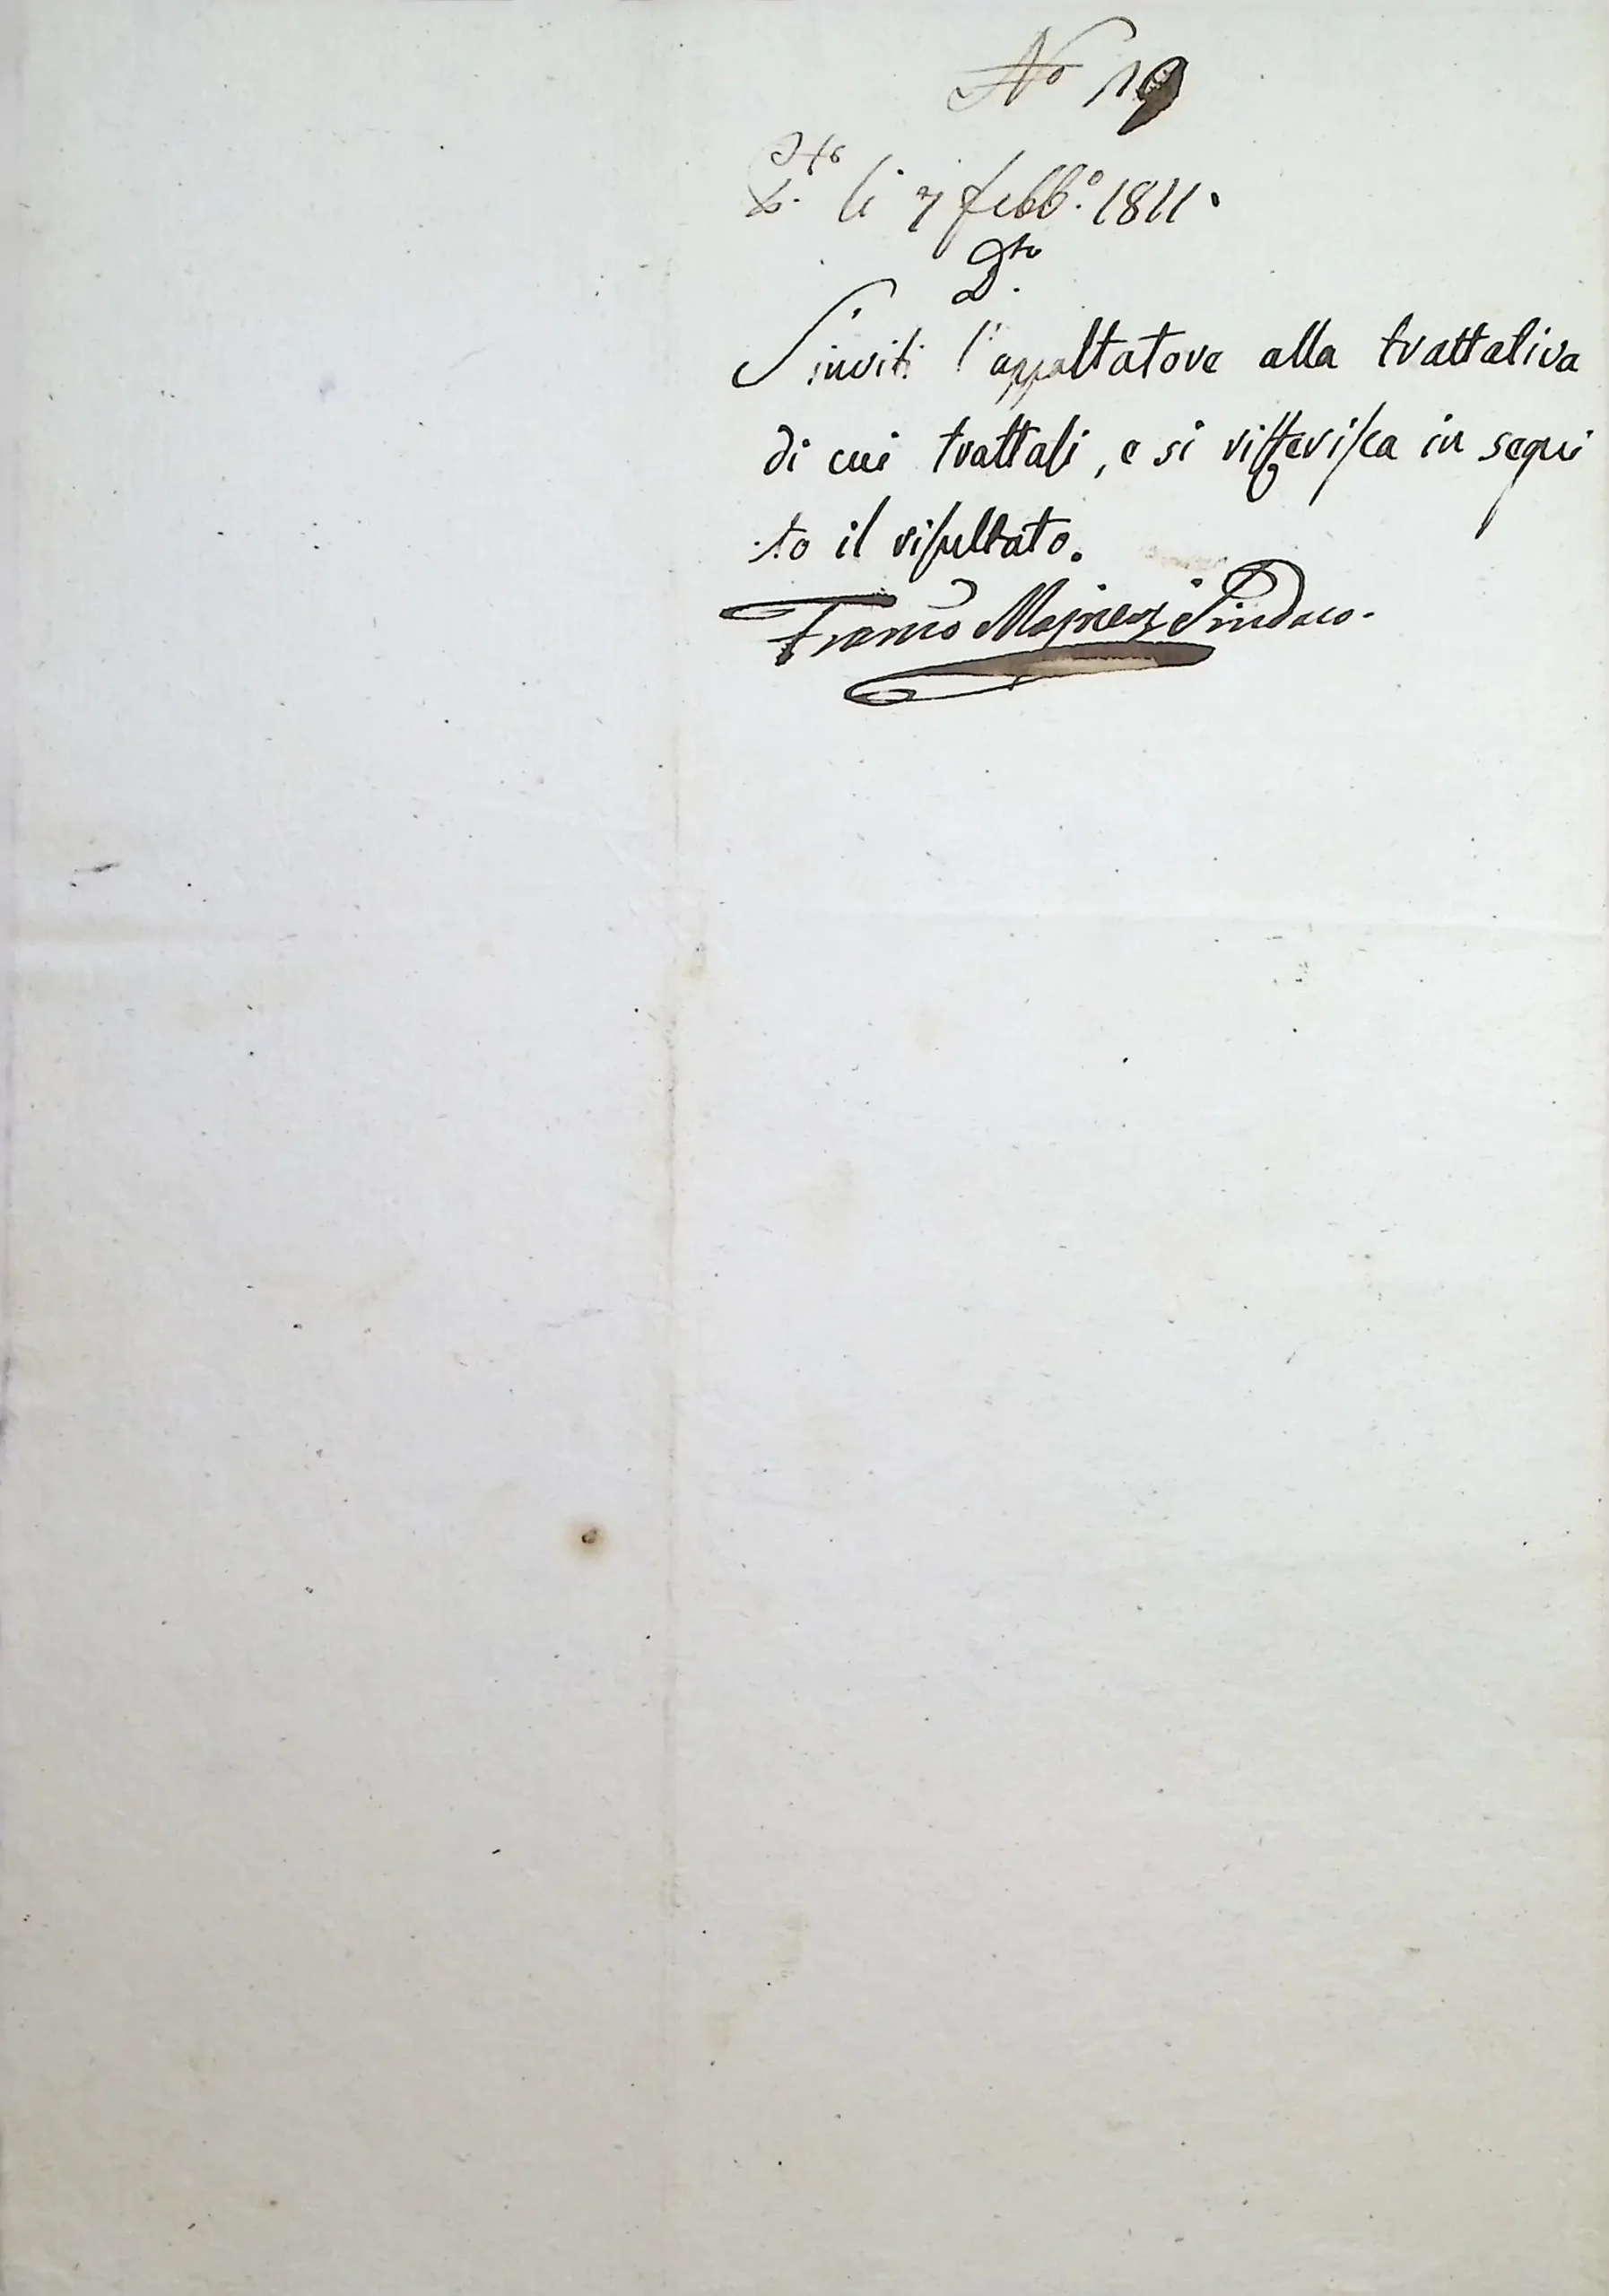 No 19
li 7 febb.o 1811.
D.to
S'inviti l'appaltatore alla trattativa
di cui trattasi, e si rifferisca in segui
to il risultato.
Sindaco.